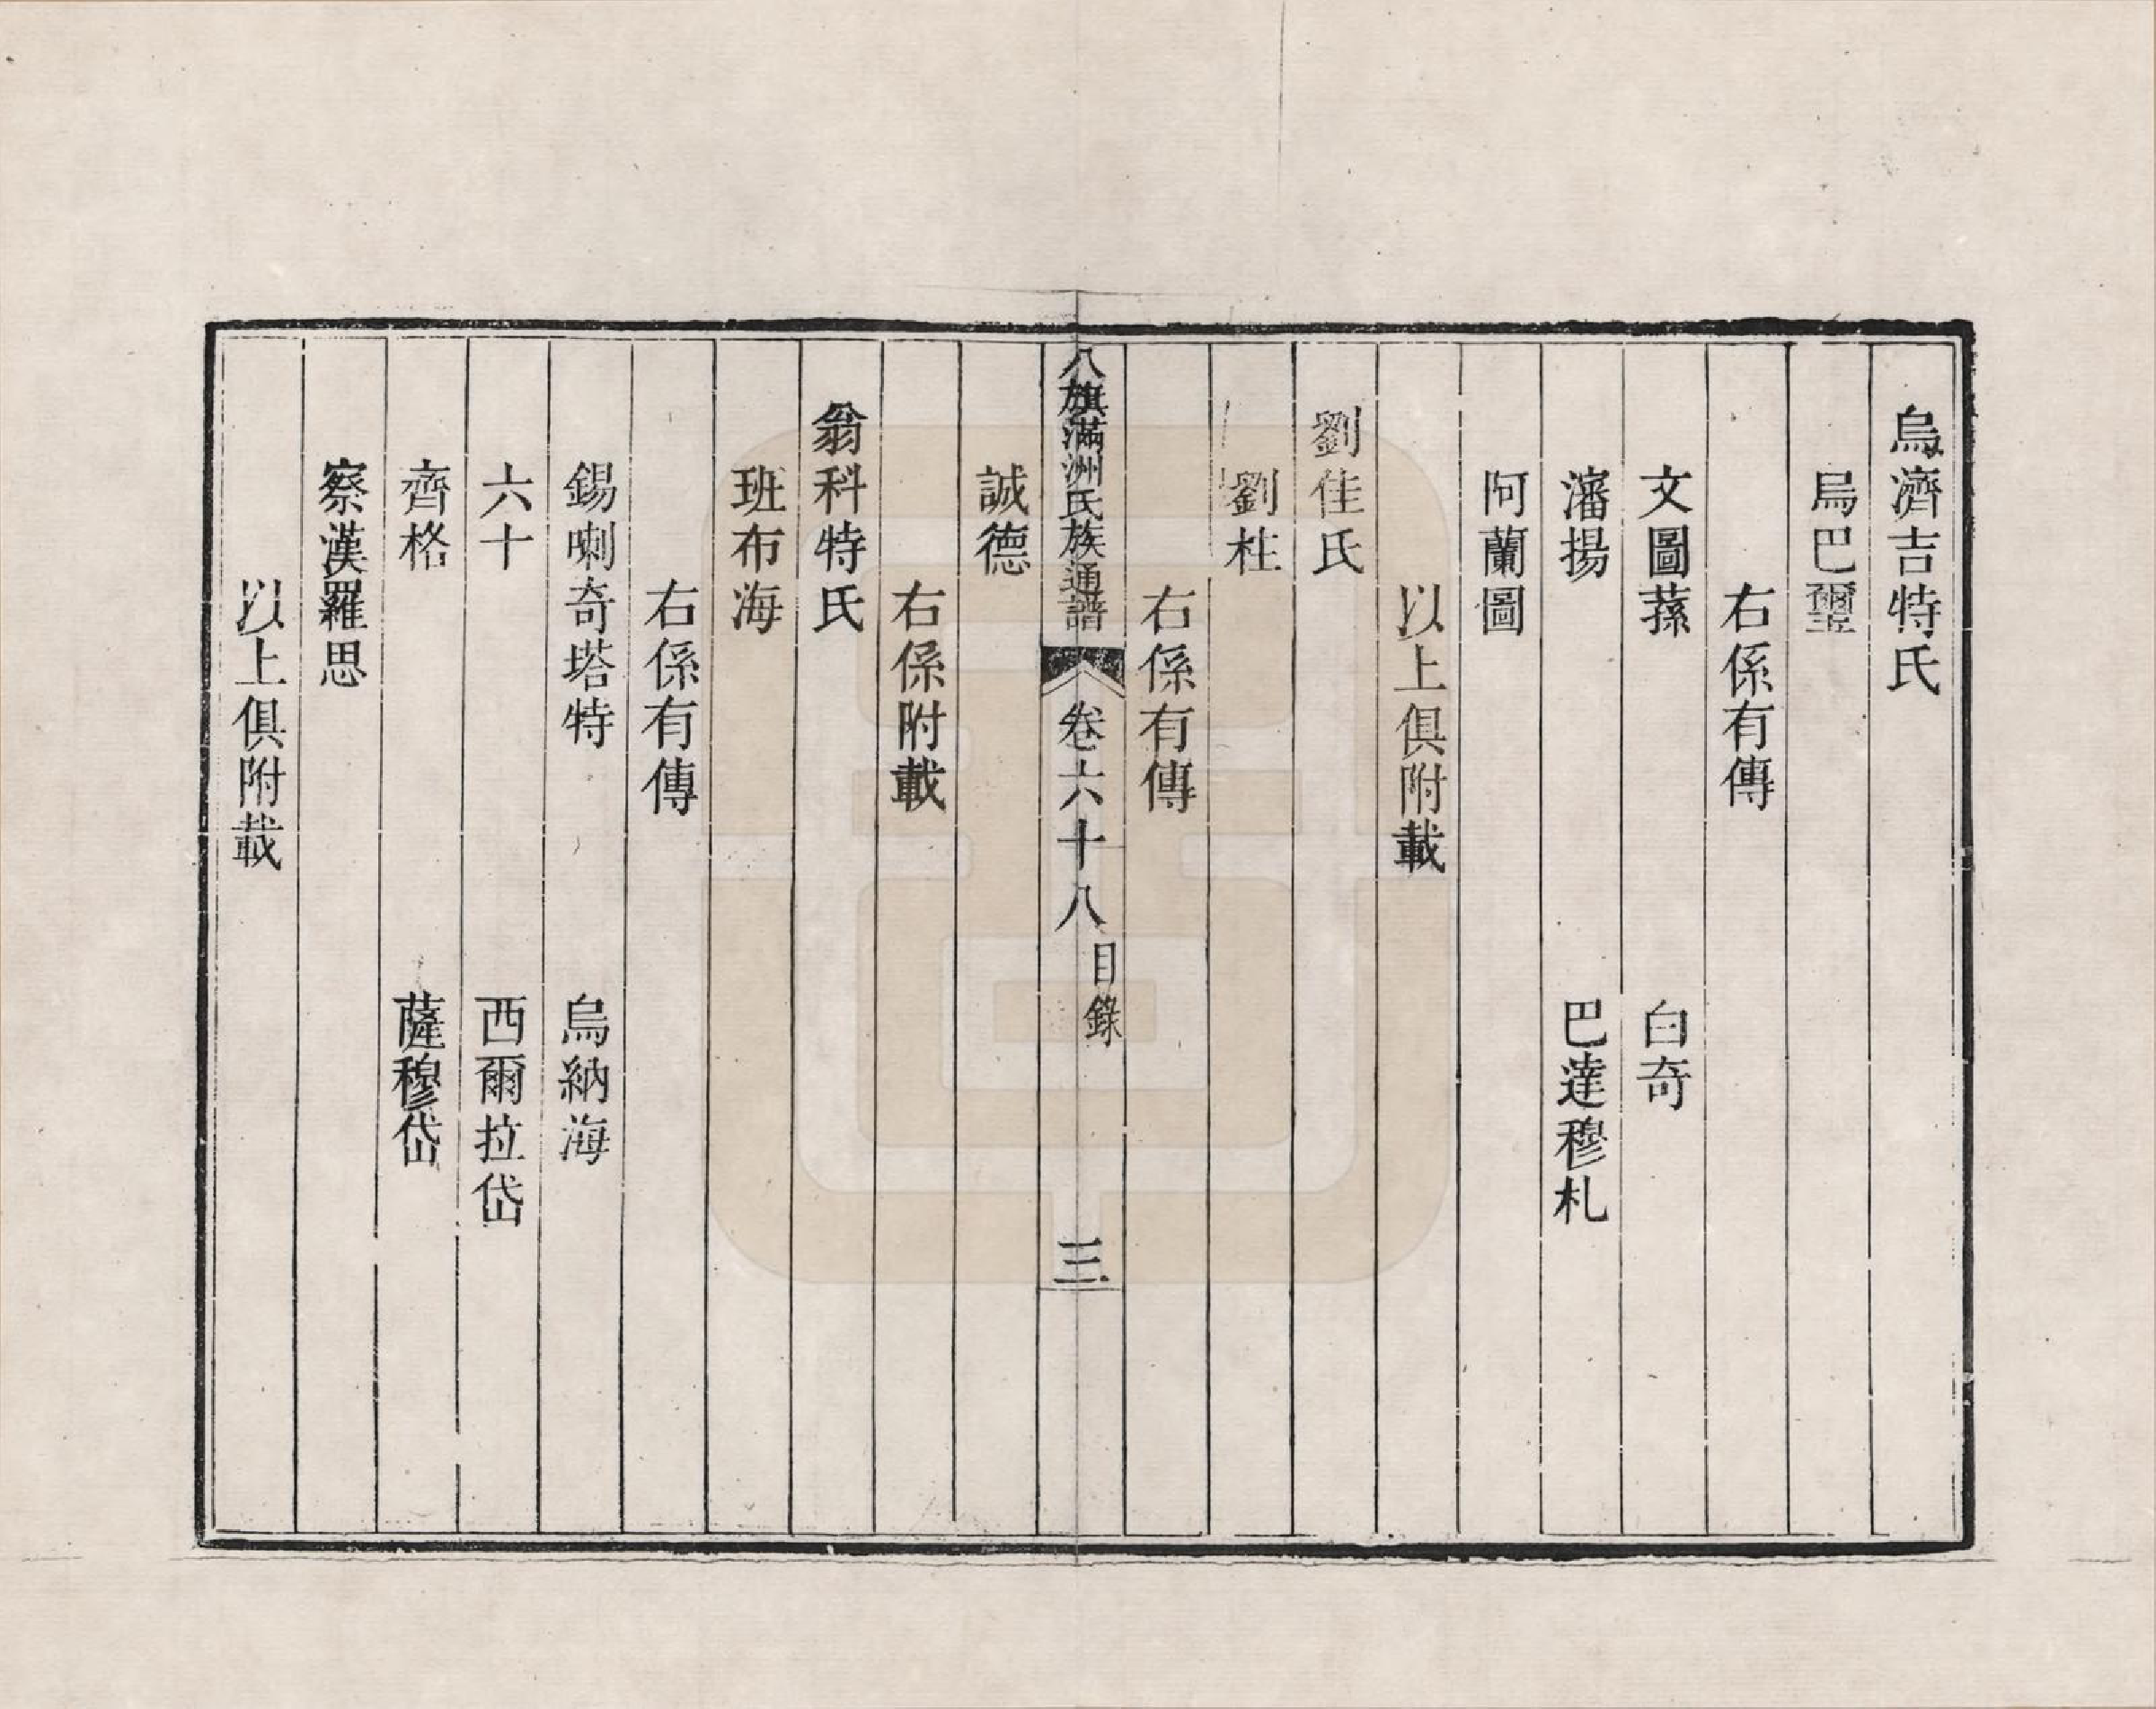 烏濟吉特氏
烏巴璽
右係有傳
文圖蓀　白奇
瀋揚　巴達穆札
阿蘭圖
以上俱附載
劉佳氏
劉柱
右係有傳
八旗滿洲氏族通譜　卷六十八　目錄　三
誠德
右係附載
翁科特氏
班布海
右係有傳
錫喇奇塔特　烏納海
六十　西爾拉岱
齊格　薩穆岱
察漢羅思
以上俱附載